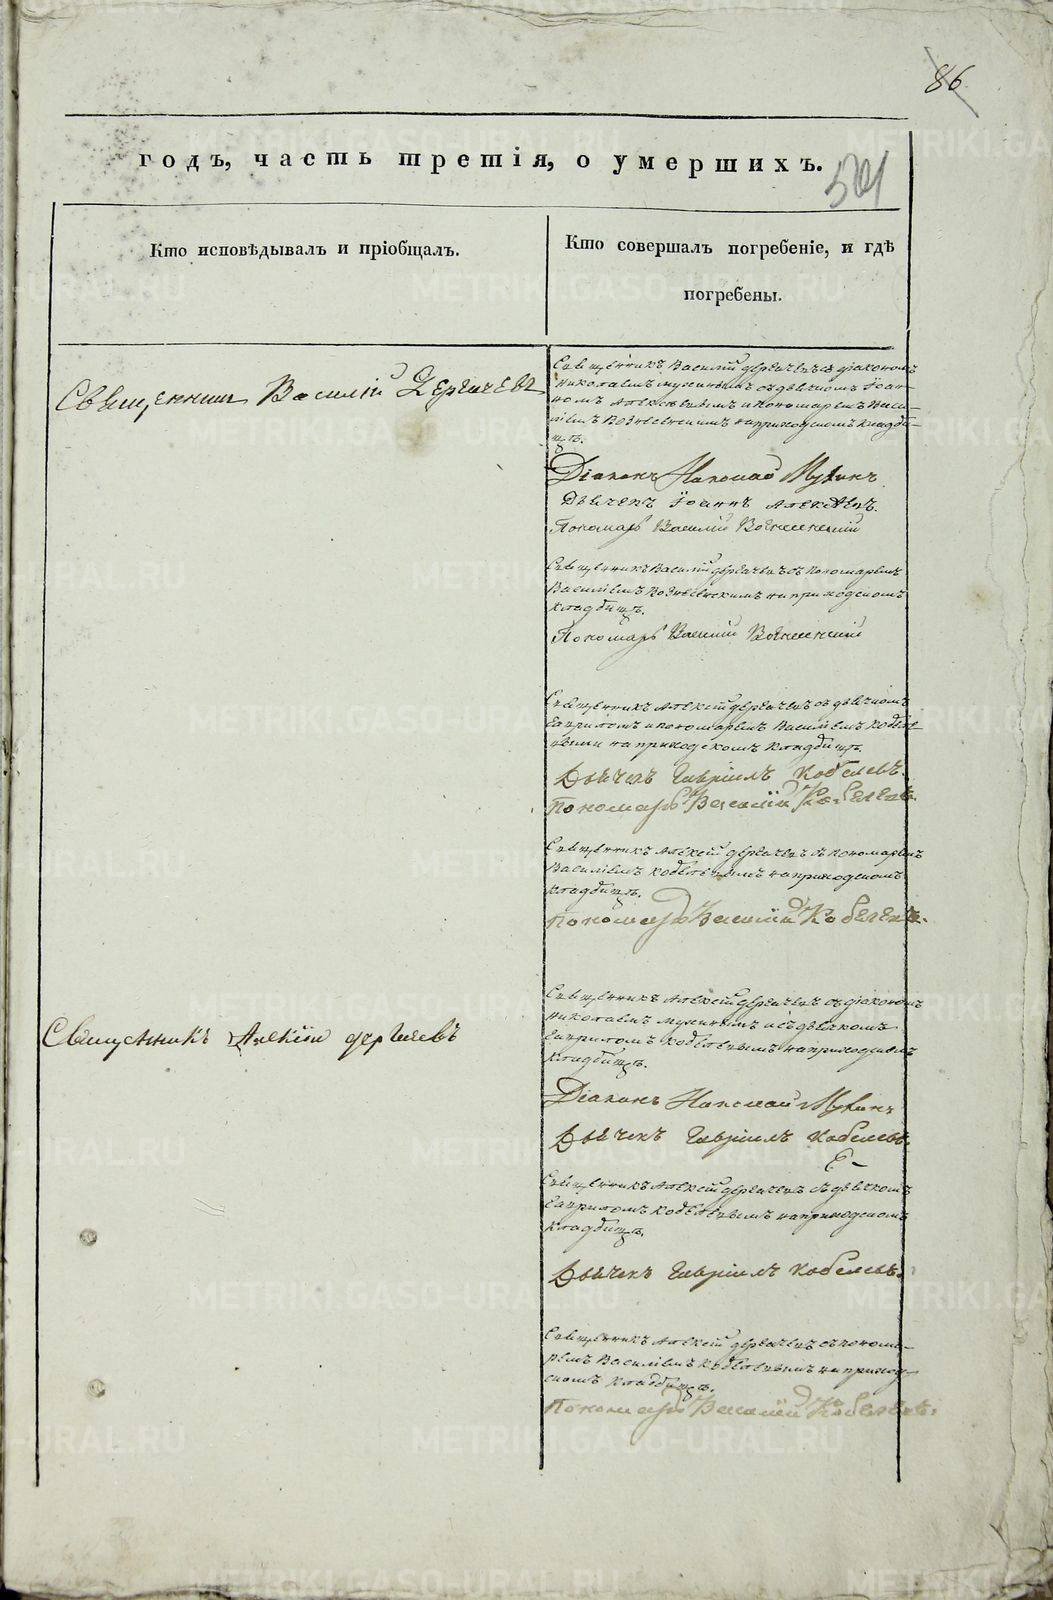 86
годъ, часть третія, о умершихъ.
501
Кто исповѣдывалъ и пріобщалъ.
Кто совершалъ погребеніе, и гдѣ
погребены.
Священникъ Василій Дергачевъ
Священникъ Василій Дергачевъ съ діакономъ
Николаемъ Мухинымъ съ дьячкомъ Іоан-
номъ Алексѣевымъ и пономаремъ Васи-
ліемъ Вознесенскимъ на приходскомъ кладби-
щѣ.
Діаконъ Николай Мухинъ
Дьячекъ Іоаннъ Алексѣевъ.
Пономарь Василій Вознесенскій
Священникъ Василій Дергачевъ съ пономаремъ
Василіемъ Вознесенскимъ на приходскомъ
кладбищѣ.
Пономарь Василій Вознесенскій
Священникъ Алексій Дергачевъ съ дьячкомъ
Гавриломъ и пономаремъ Василіемъ Кобеле-
выми на приходскомъ кладбищѣ.
Дьячекъ Гавріилъ Кобелевъ.
Пономарь Василій Кобелевъ.
Священникъ Алексій Дергачевъ съ пономаремъ
Василіемъ Кобелевымъ на приходскомъ
кладбищѣ.
Пономарь Василій Кобелевъ.
Священникъ Алексій Дергачевъ съ діакономъ
Николаемъ Мухинымъ и съ дьячкомъ
Гавриломъ Кобелевымъ на приходскомъ
кладбищѣ.
Священникъ Алексій Дергачевъ
Діаконъ Николай Мухинъ
Дьячекъ Гавріилъ Кобелевъ.
Священникъ Алексій Дергачевъ съ дьячкомъ
Гавриломъ Кобелевымъ на приходскомъ
кладбищѣ.
Дьячекъ Гавріилъ Кобелевъ.
Священникъ Алексій Дергачевъ съ понома-
ремъ Василіемъ Кобелевымъ на приход-
скомъ кладбищѣ.
Пономарь Василій Кобелевъ.
METRIKI.GASO-URAL.RU